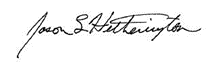 Jason L Hetherington